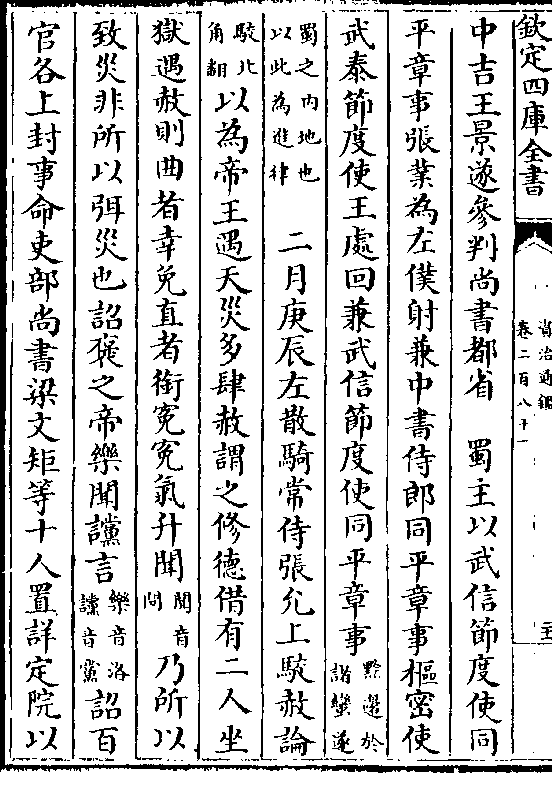 欽定四庫全書
資治通鑑
卷二百八十一
中吉王景遂參判尚書都省　蜀主以武信節度使同
平章事張業為左僕射兼中書侍郎同平章事樞密使
武泰節度使王處回兼武信節度使同平章事黔邊於諸蠻遂
蜀之內地也以此為進律　二月庚辰左散騎常侍張允上駮赦論
駮北角翻以為帝王遇天災多肆赦謂之修德借有二人坐
獄遇赦則曲者幸免直者銜冤冤氣升聞聞音問乃所以
致災非所以弭災也詔褒之帝樂聞讜言樂音洛讜音黨詔百
官各上封事命吏部尚書梁文矩等十人置詳定院以